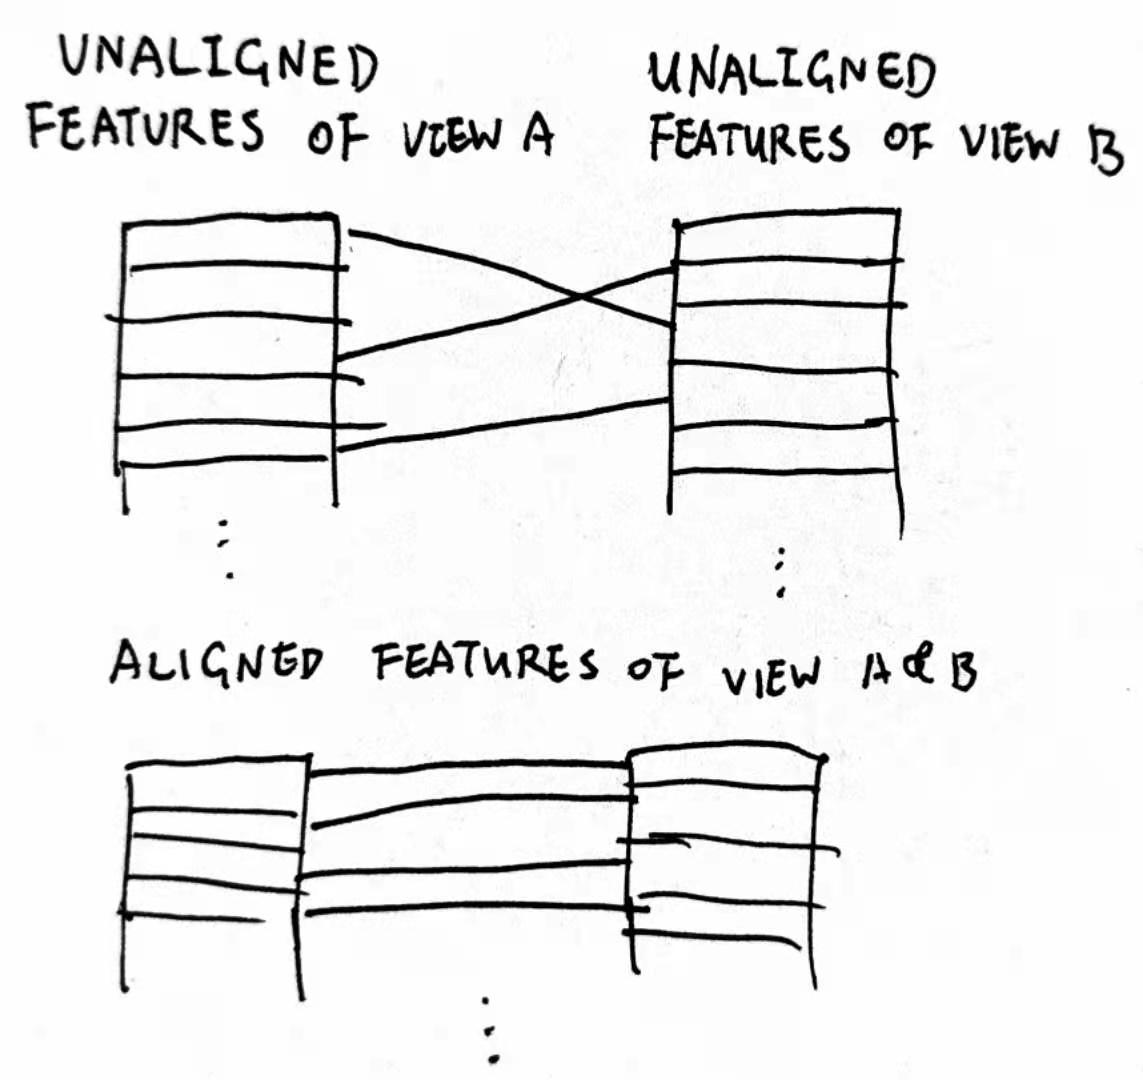 UNALIGNED
FEATURES OF VIEW A
UNALIGNED
FEATURES OF VIEW B
ALIGNED FEATURES OF VIEW A & B